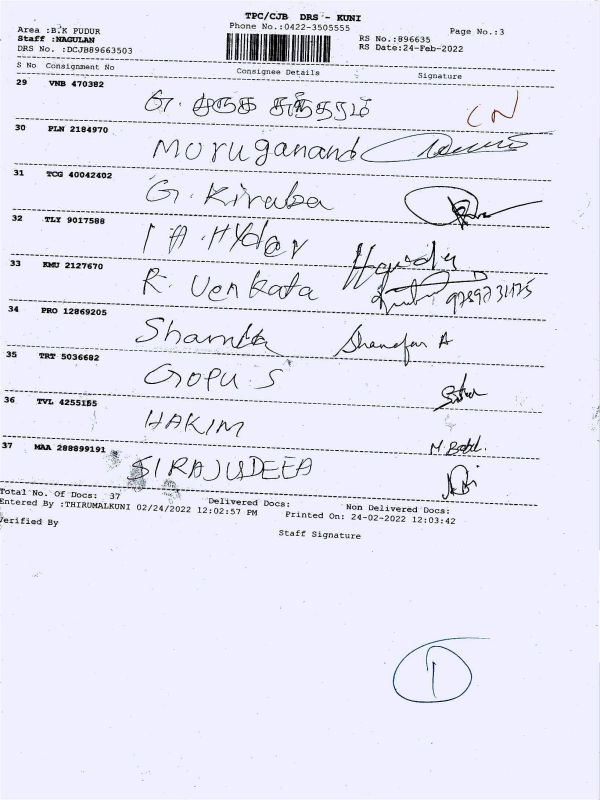 TPC/CJB DRS - KUNI
Phone No.:0422-3505555
Page No.:3
Area :B.K PUDUR
Staff :NAGULAN
RS No.:896635
DRS No. :DCJB89663503
RS Date:24-Feb-2022
S No Consignment No Consignee Details Signature
29 VNB 470382
G. CN
30 PLN 2184970
Moruganand
31 TCG 40042402
G. Kiruba
32 TLY 9017588
I A. HYder
33 KMU 2127670
R. Venkata
34 PRO 12869205
Shanafar A
35 TRT 5036682
Gopu S
36 TVL 4255155
HAKIM
37 MAA 288899191
SIRAJUDEEA
Total No. Of Docs: 37 Delivered Docs: Non Delivered Docs:
Entered By :THIRUMALKUNI 02/24/2022 12:02:57 PM Printed On: 24-02-2022 12:03:42
Verified By
Staff Signature
1